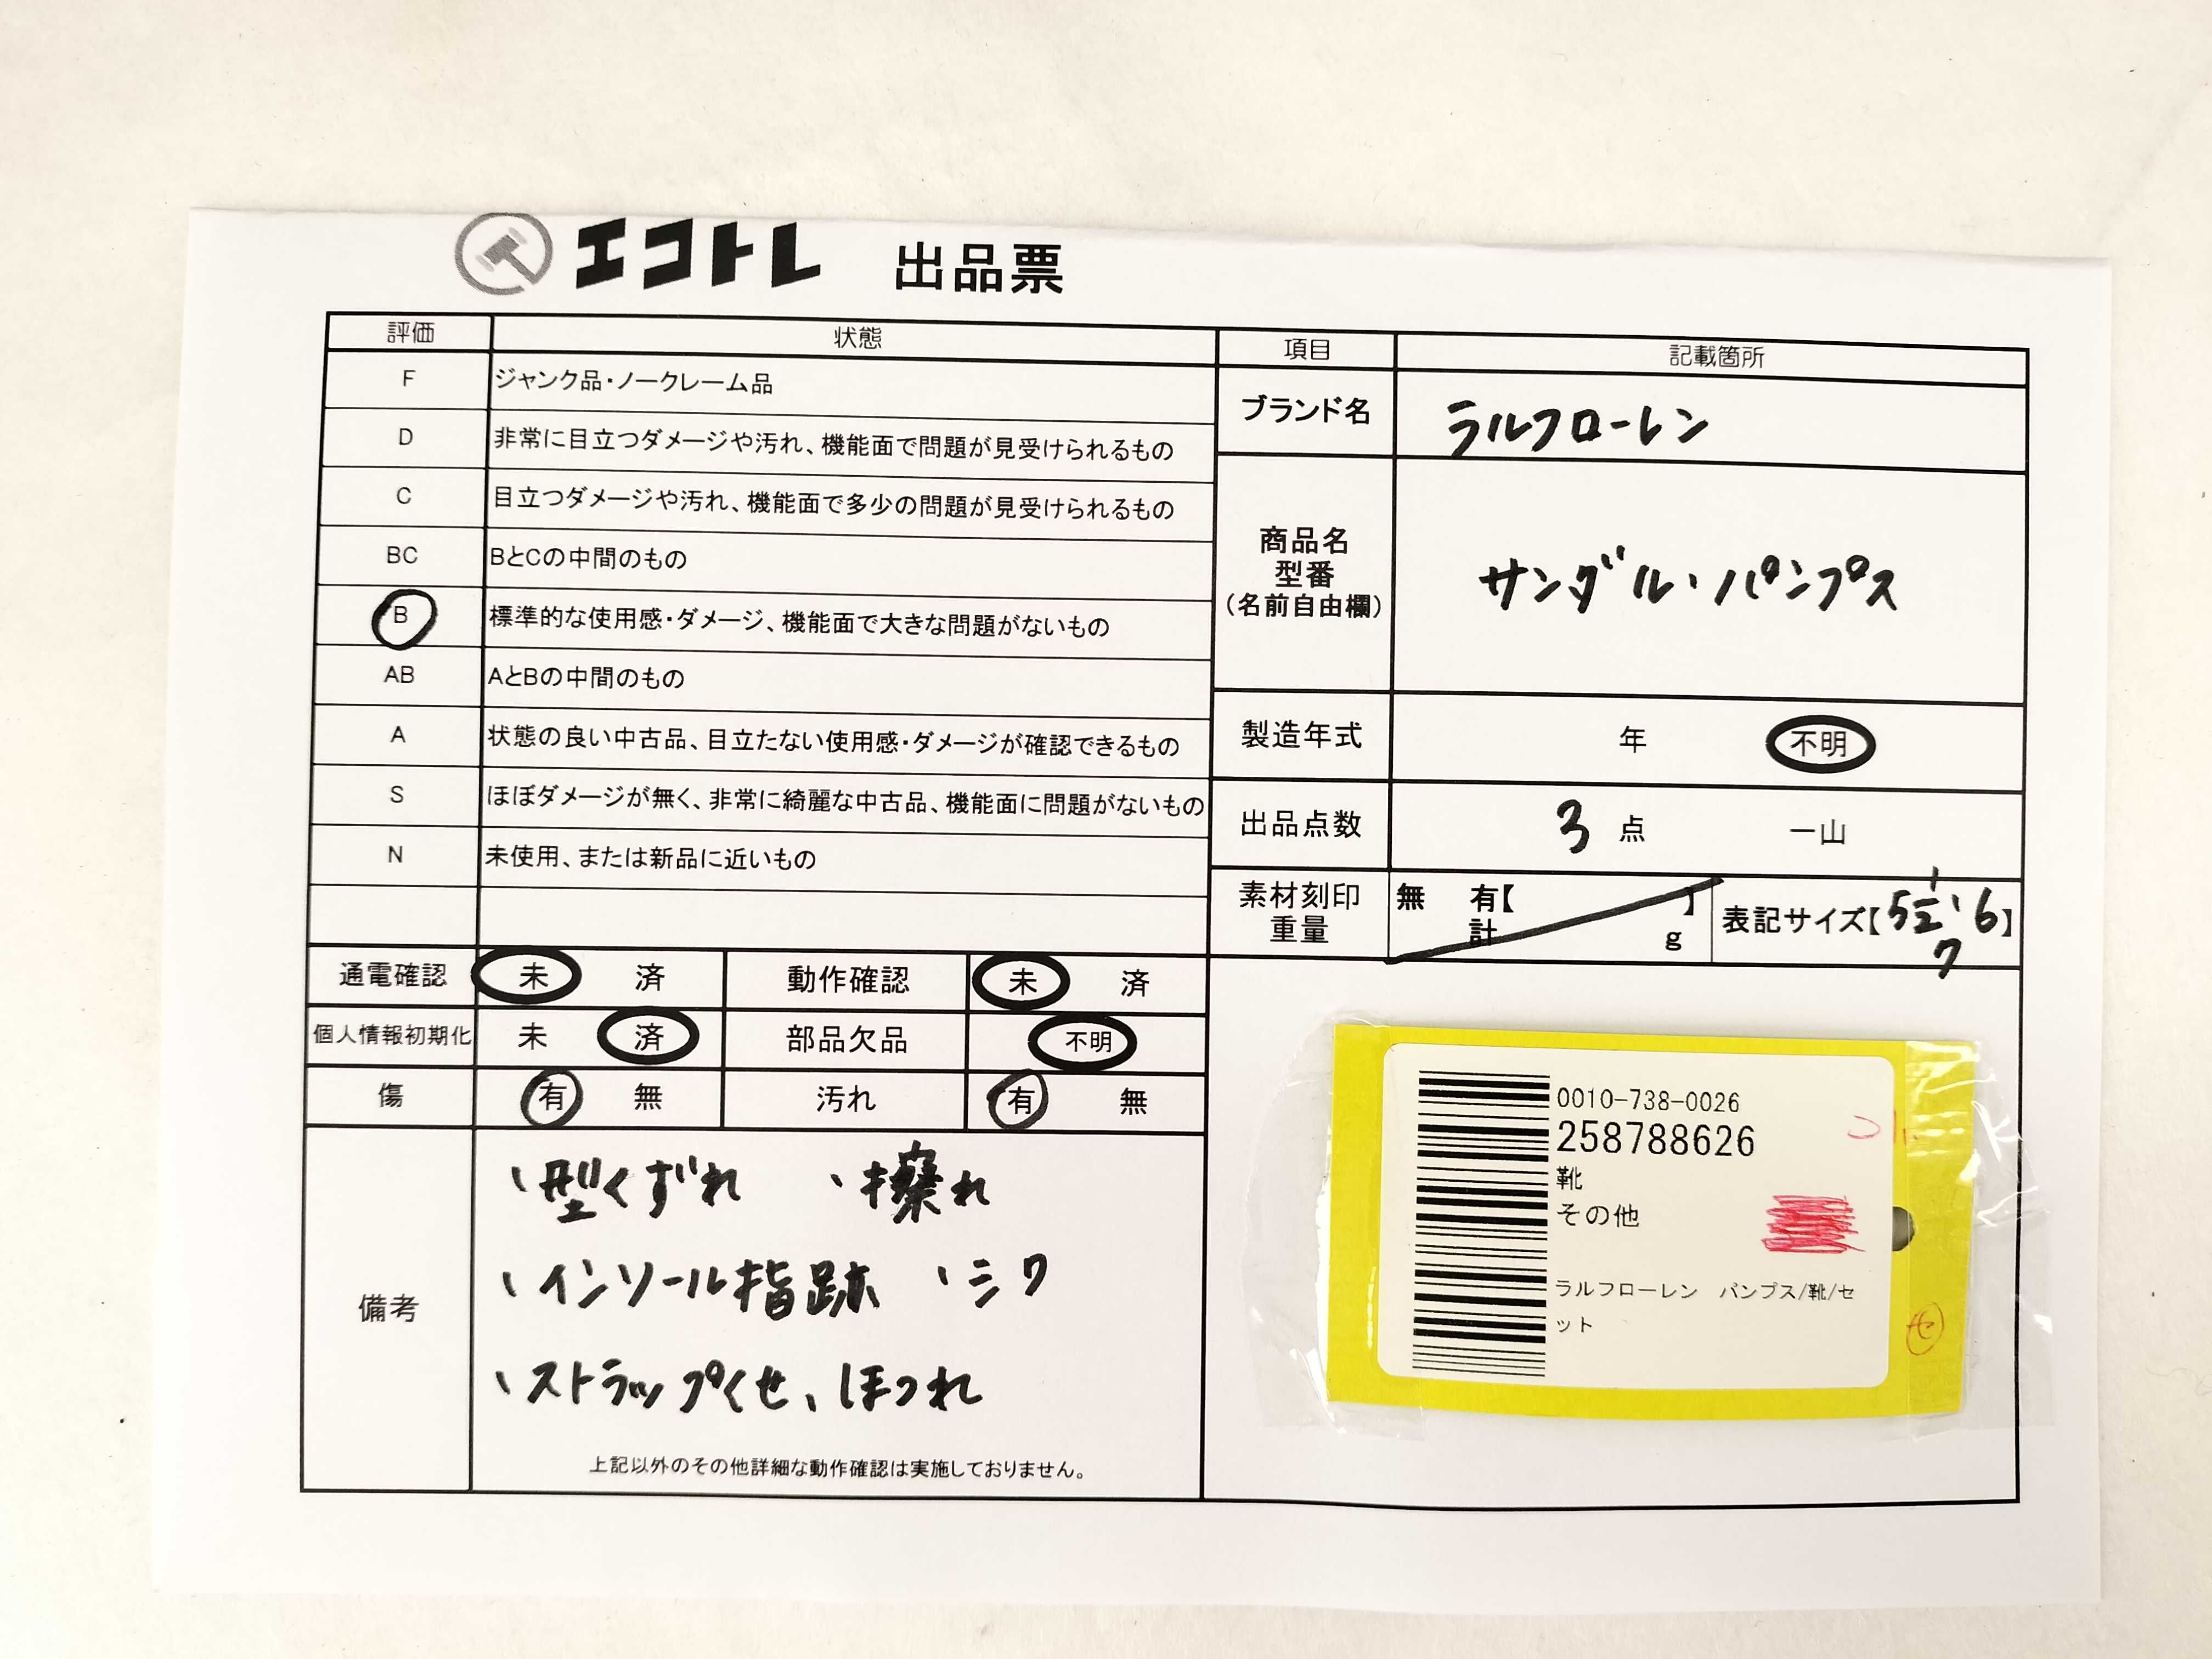 エコトレ 出品票
評価 状態 項目 記載箇所
F ジャンク品・ノークレーム品
D 非常に目立つダメージや汚れ、機能面で問題が見受けられるもの
C 目立つダメージや汚れ、機能面で多少の問題が見受けられるもの
BC BとCの中間のもの
B 標準的な使用感・ダメージ、機能面で大きな問題がないもの
AB AとBの中間のもの
A 状態の良い中古品、目立たない使用感・ダメージが確認できるもの
S ほぼダメージが無く、非常に綺麗な中古品、機能面に問題がないもの
N 未使用、または新品に近いもの
ブランド名 ラルフローレン
商品名
型番
(名前自由欄)
サンダル・パンプス
製造年式 年 不明
出品点数 3 点 一山
素材刻印
重量
無 有【 】
計 g
表記サイズ【5 1/2、6】
7
通電確認 未 済 動作確認 未 済
個人情報初期化 未 済 部品欠品 不明
傷 有 無 汚れ 有 無
備考
、型くずれ 、擦れ
、インソール指跡 、シワ
、ストラップくせ、ほつれ
上記以外のその他詳細な動作確認は実施しておりません。
0010-738-0026
258788626
靴
その他
ラルフローレン パンプス/靴/セ
ット
セ